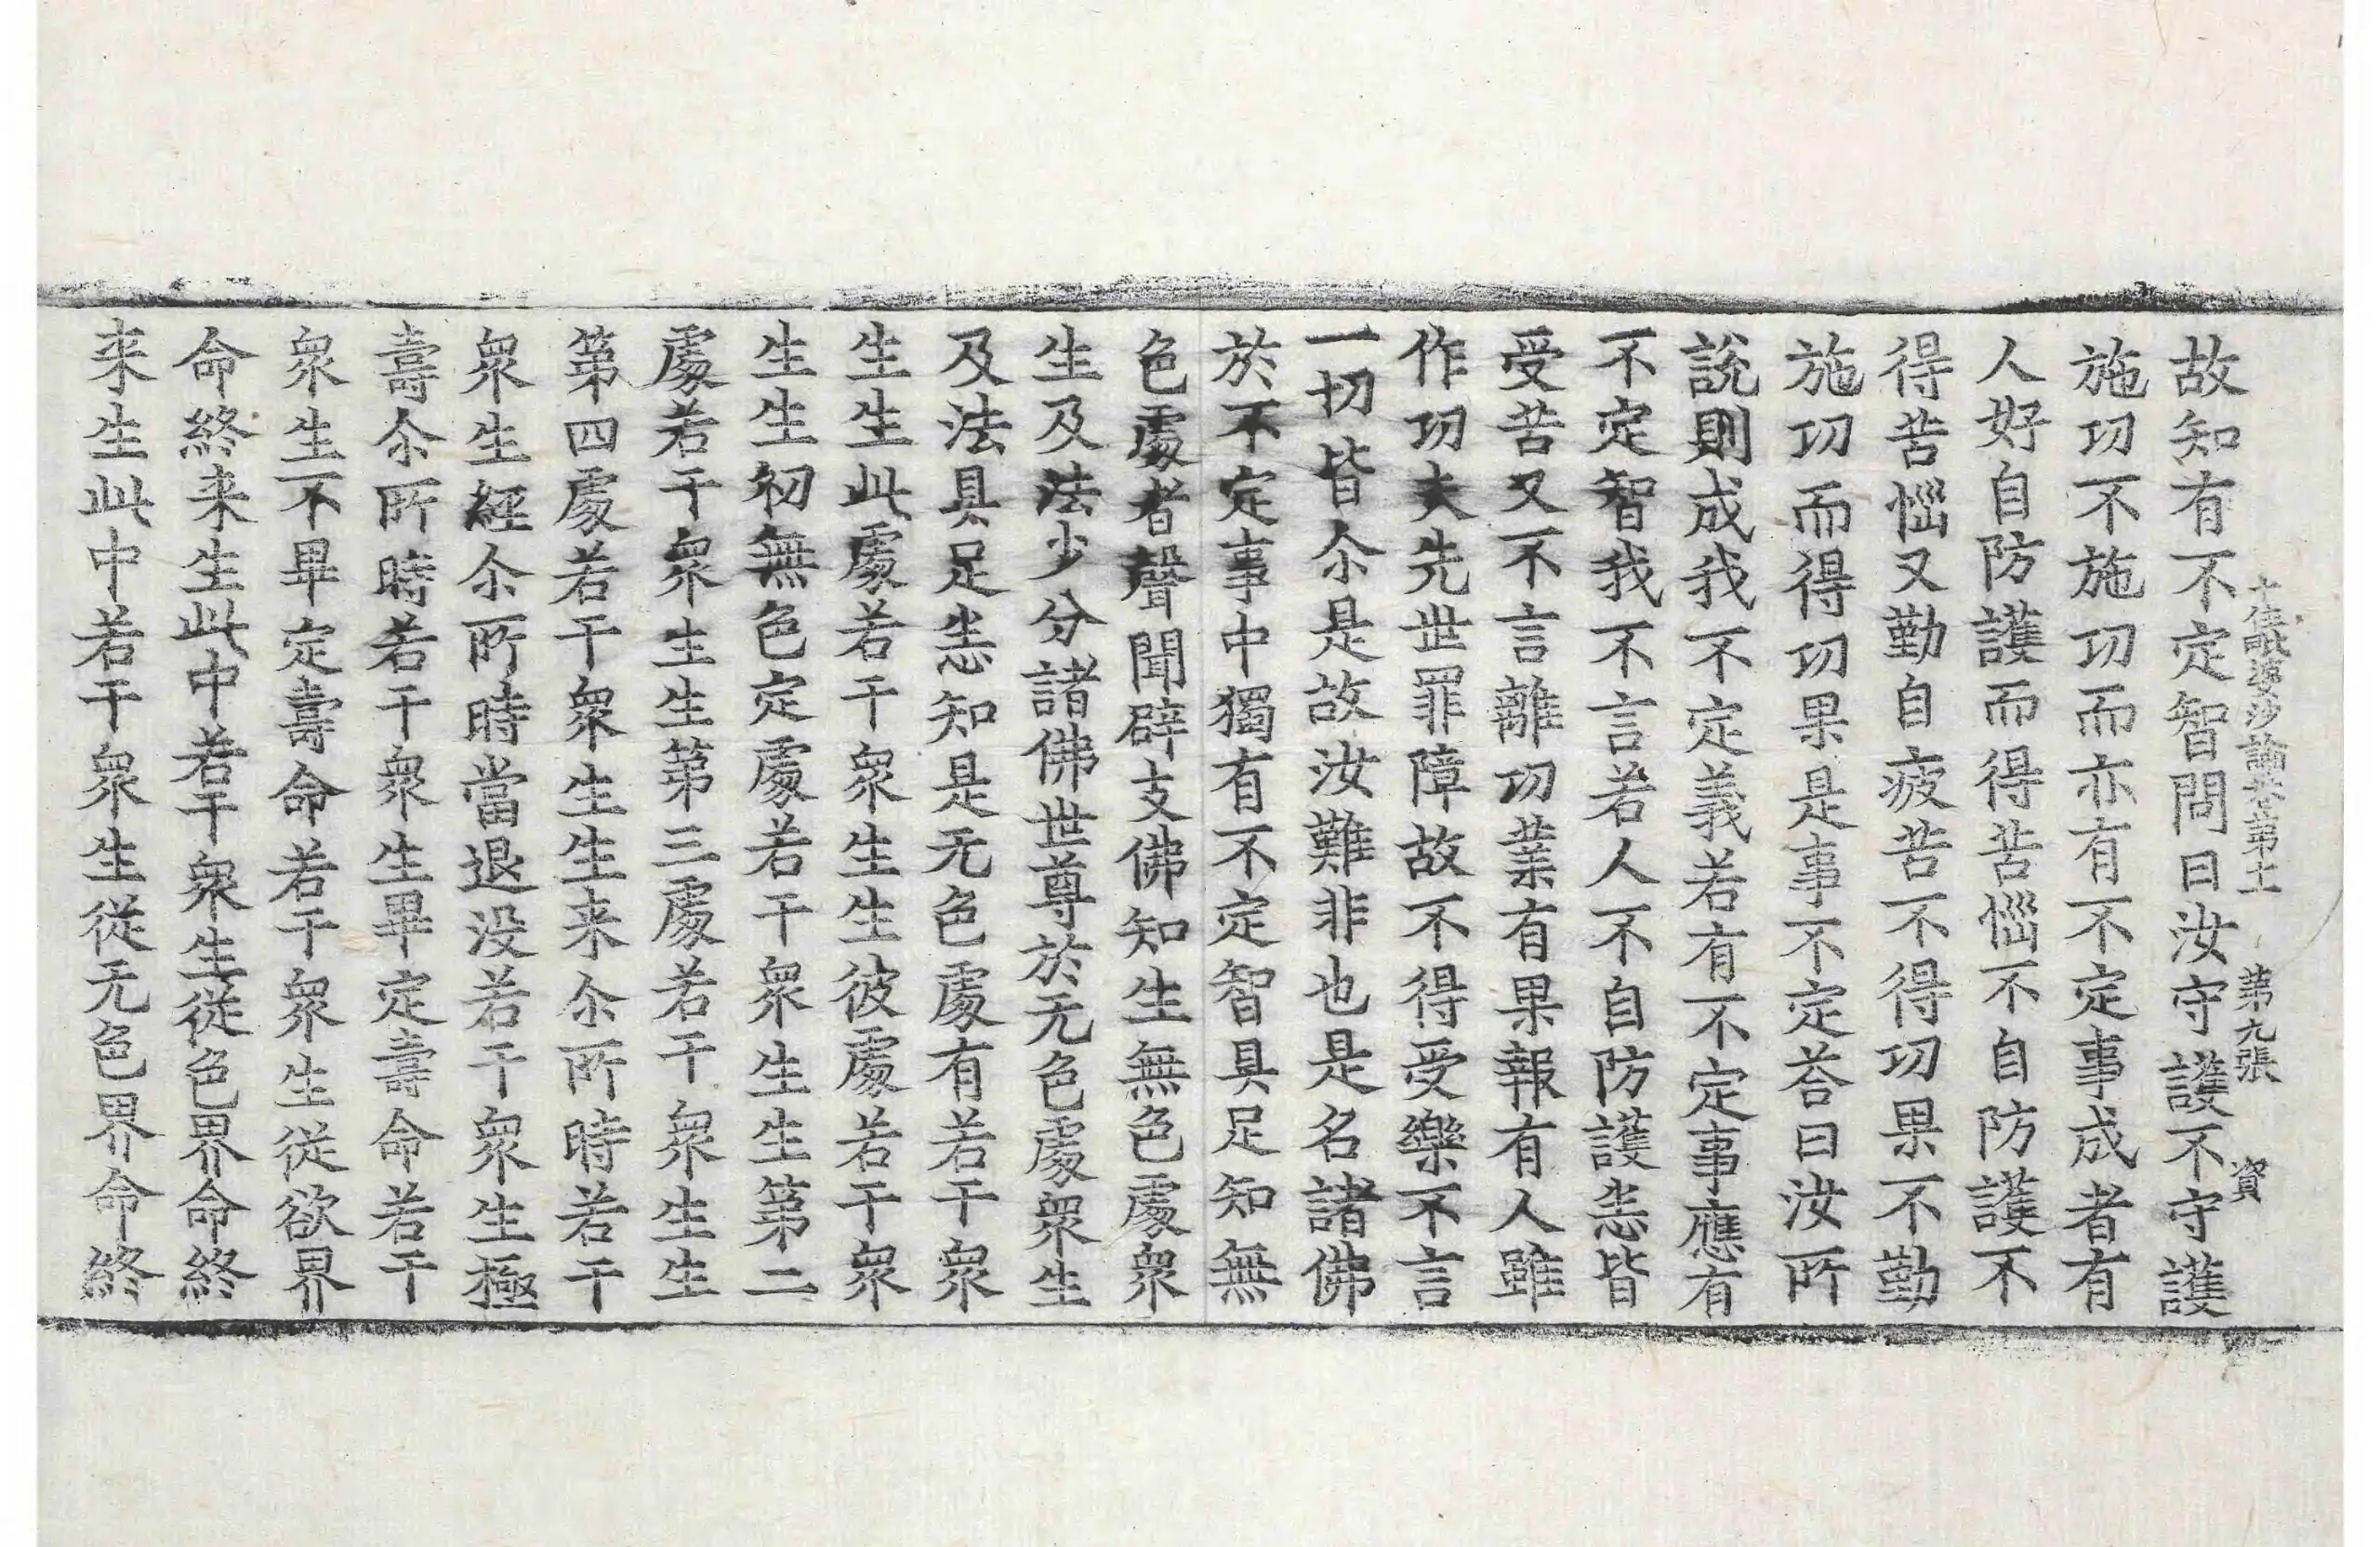 十住毗婆沙論卷第十一 第九張 資
故知有不定智問曰汝守護不守護
施功不施功而亦有不定事成者有
人好自防護而得苦惱不自防護不
得苦惱又勤自疲苦不得功果不勤
施功而得功果是事不定荅曰汝所
說則成我不定義若有不定事應有
不定智我不言若人不自防護恙皆
受苦又不言離功業有果報有人雖
作功夫先世罪障故不得受樂不言
一切皆尒是故汝難非也是名諸佛
於不定事中獨有不定智具足知無
色處者聲聞辟支佛知生無色處衆
生及法少分諸佛世尊於无色處衆生
及法具足恙知是无色處有若干衆
生生此處若干衆生生彼處若干衆
生生初無色定處若干衆生生第二
處若干衆生生第三處若干衆生生
第四處若干衆生生来尒所時若干
衆生經尒所時當退没若干衆生極
壽尒所時若干衆生畢定壽命若干
衆生不畢定壽命若干衆生從欲界
命終来生此中若干衆生從色界命終
来生此中若干衆生從无色界命終